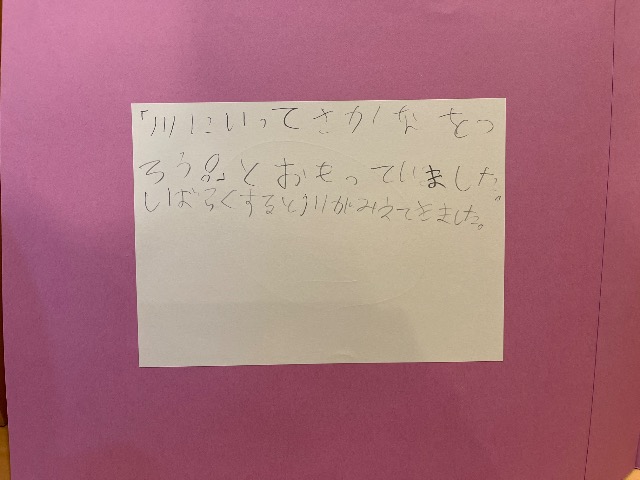 「川にいってさかなをとっ
ろう。とおもっていました。
しばらくすると川がみえてきました。